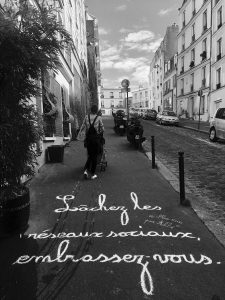 Lâchez les
réseaux sociaux,
embrassez-vous.